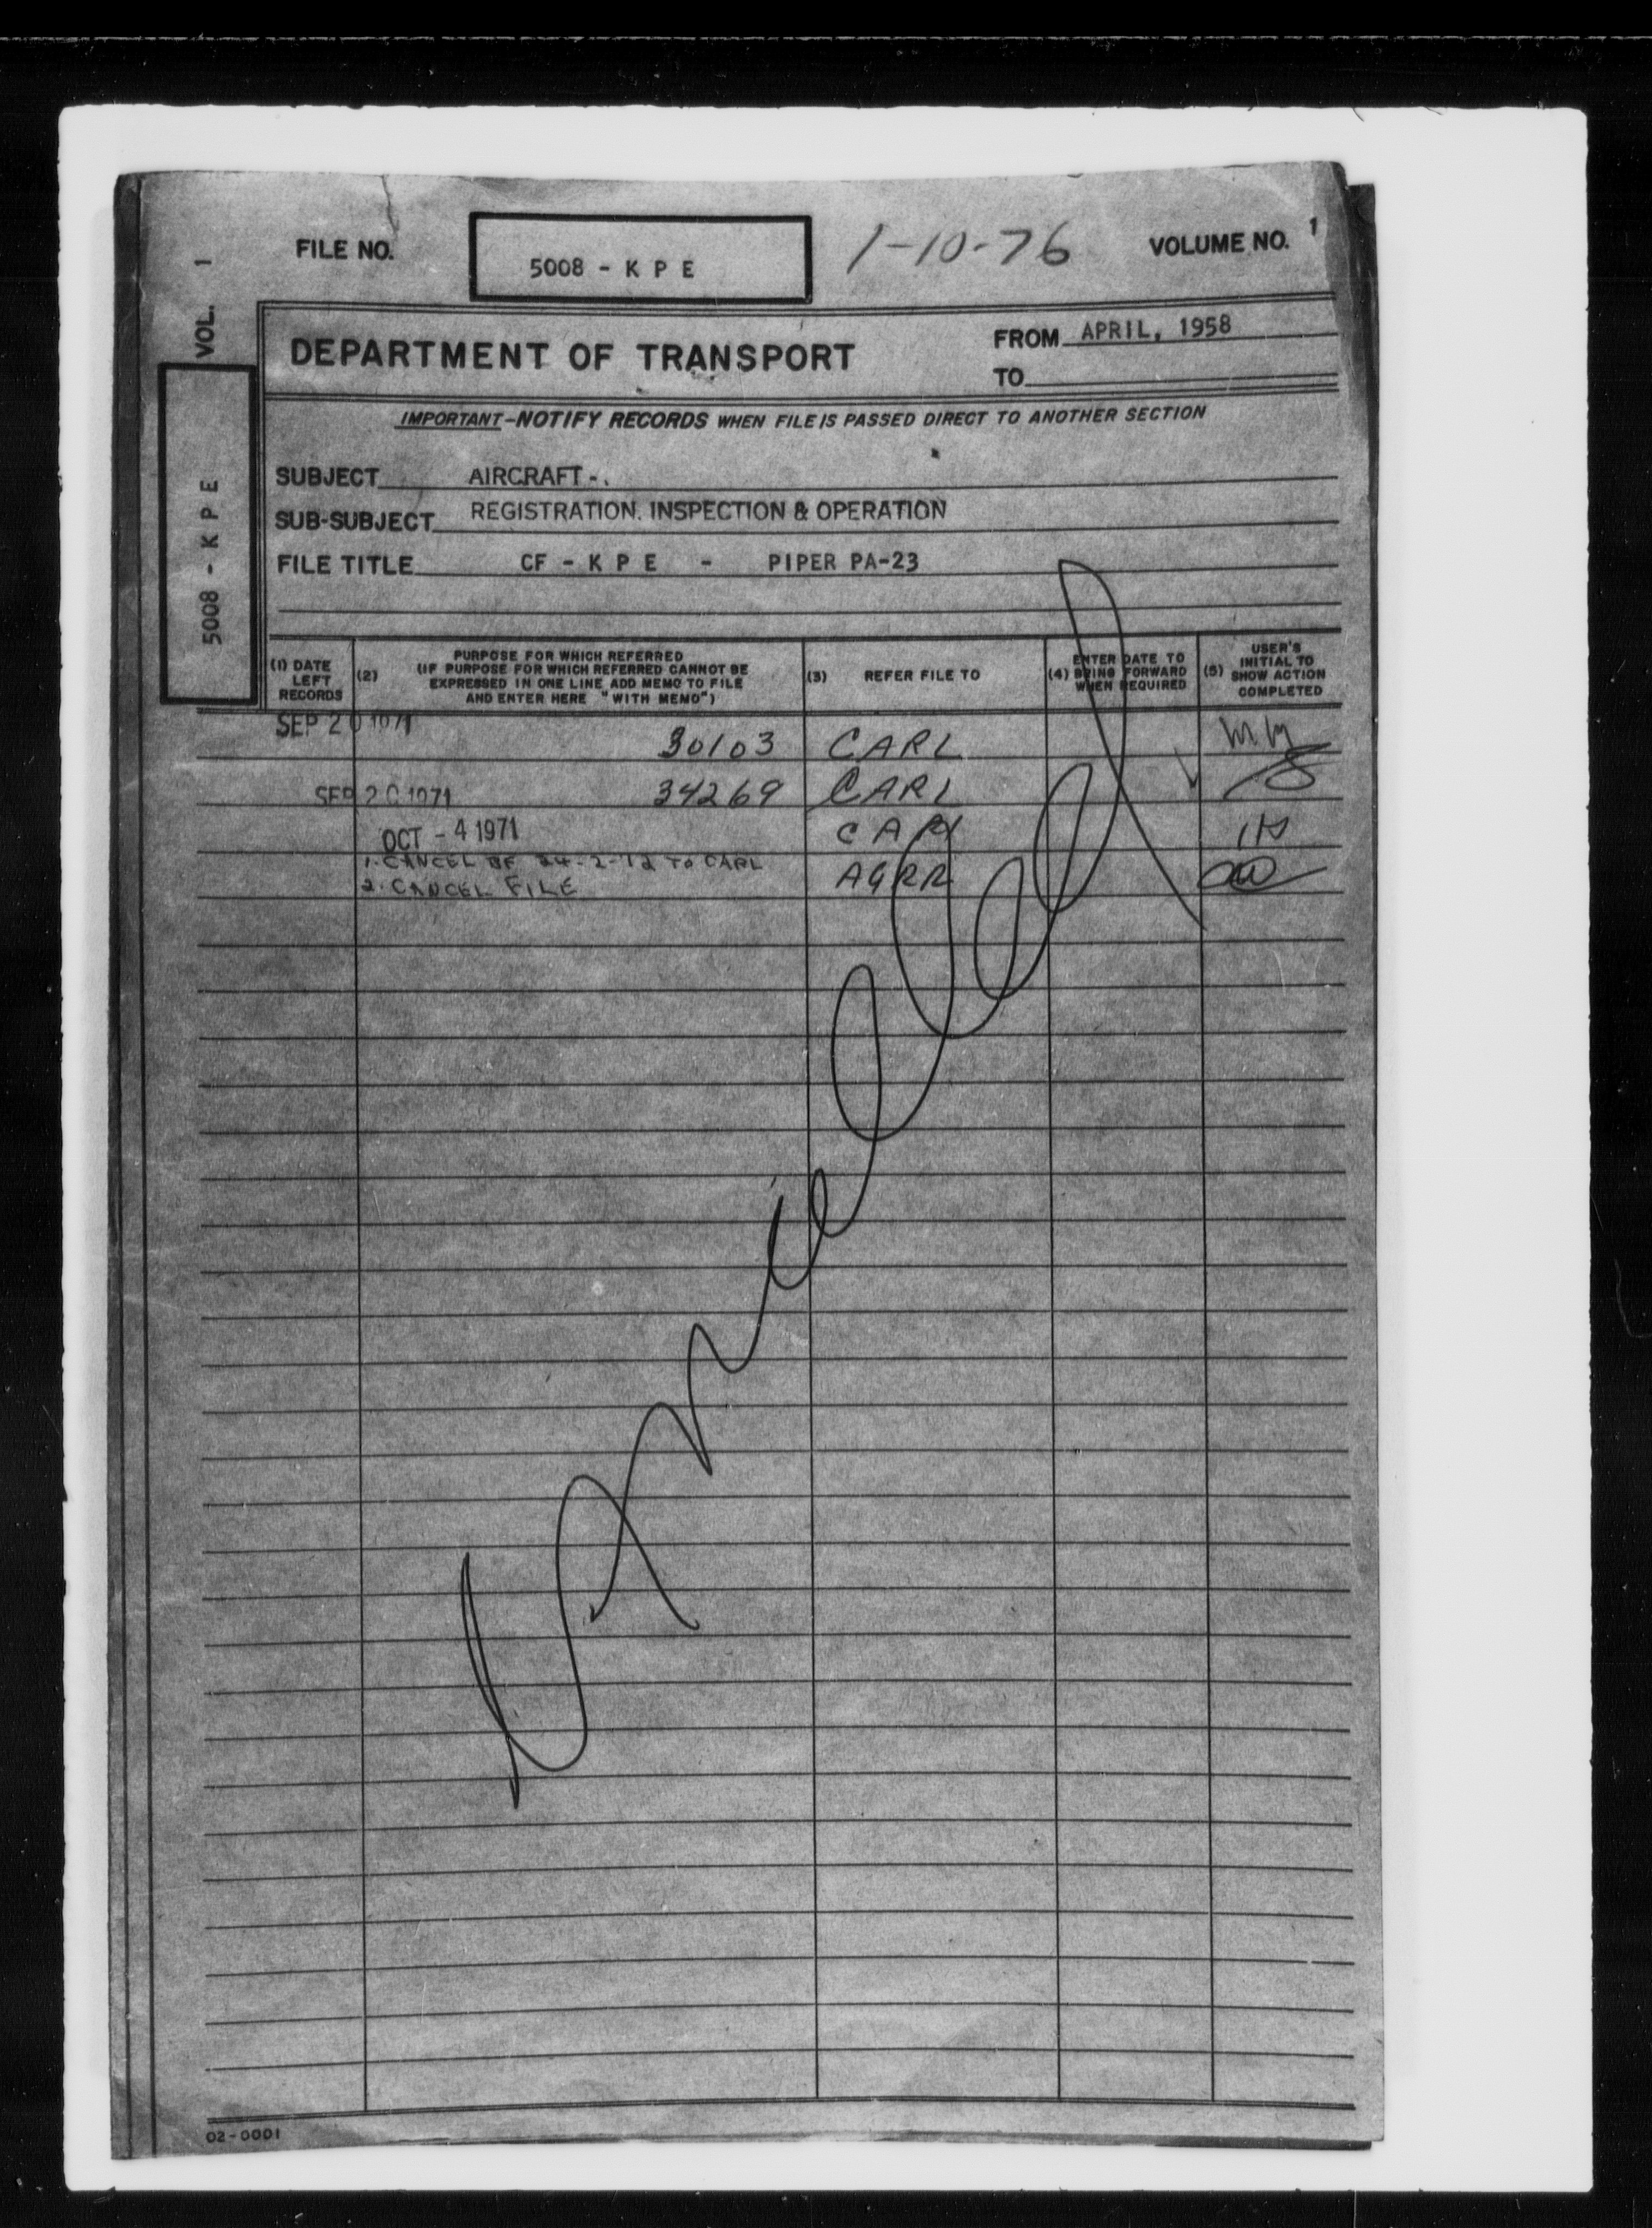 FILE NO. 5008 - K P E 1-10-76 VOLUME NO. 1
VOL. 1
5008 - K P E
DEPARTMENT OF TRANSPORT
FROM APRIL, 1958
TO
IMPORTANT-NOTIFY RECORDS WHEN FILE IS PASSED DIRECT TO ANOTHER SECTION
SUBJECT AIRCRAFT -.
SUB-SUBJECT REGISTRATION. INSPECTION & OPERATION
FILE TITLE CF - K P E - PIPER PA-23
(1) DATE LEFT RECORDS
(2) PURPOSE FOR WHICH REFERRED
(IF PURPOSE FOR WHICH REFERRED CANNOT BE
EXPRESSED IN ONE LINE ADD MEMO TO FILE
AND ENTER HERE "WITH MEMO")
(3) REFER FILE TO
(4) ENTER DATE TO BRING FORWARD WHEN REQUIRED
(5) USER'S INITIAL TO SHOW ACTION COMPLETED
SEP 20 1971
30103 CARL
SEP 20 1971 34269 CARL
OCT - 4 1971 CARL
1. CANCEL BF 24-2-72 TO CARL
2. CANCEL FILE
Cancelled
02-0001